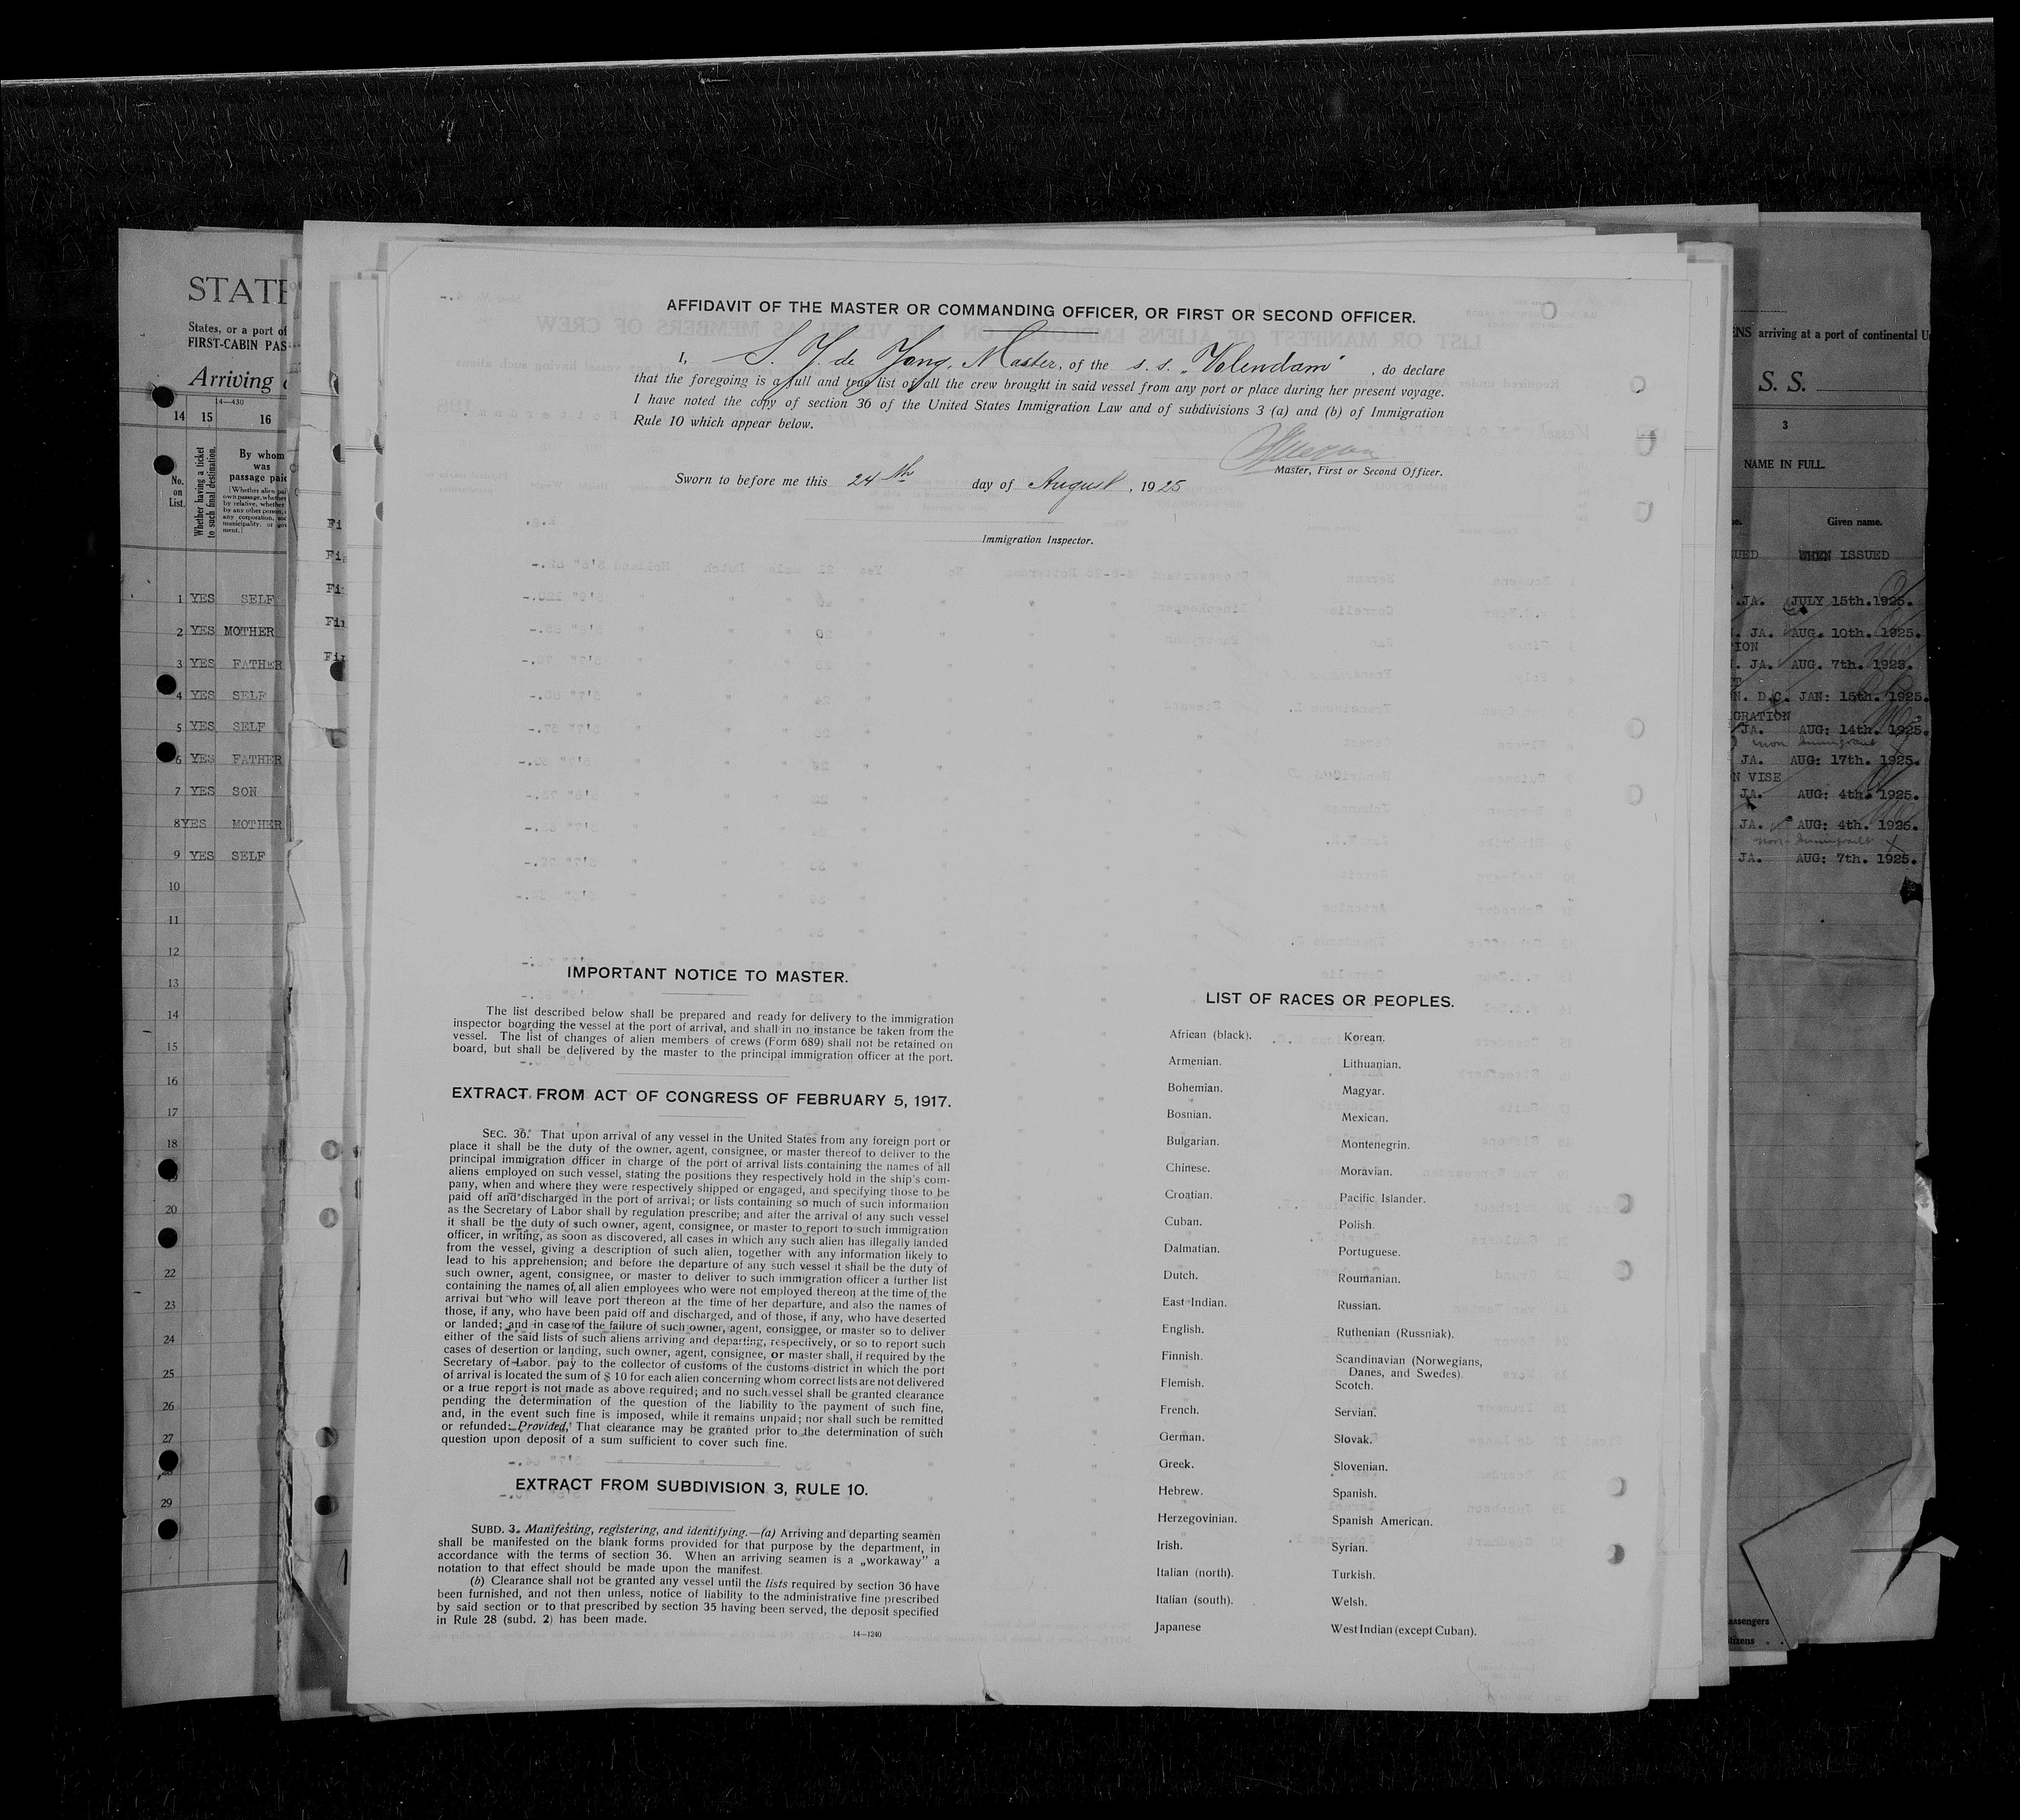 AFFIDAVIT OF THE MASTER OR COMMANDING OFFICER, OR FIRST OR SECOND OFFICER.
I, S. J. de Jong, Master, of the s. s. „Volendam" , do declare
that the foregoing is a full and true list of all the crew brought in said vessel from any port or place during her present voyage.
I have noted the copy of section 36 of the United States Immigration Law and of subdivisions 3 (a) and (b) of Immigration
Rule 10 which appear below.
Master, First or Second Officer.
Sworn to before me this 24th day of August , 1925
Immigration Inspector.
IMPORTANT NOTICE TO MASTER.
The list described below shall be prepared and ready for delivery to the immigration
inspector boarding the vessel at the port of arrival, and shall in no instance be taken from the
vessel. The list of changes of alien members of crews (Form 689) shall not be retained on
board, but shall be delivered by the master to the principal immigration officer at the port.
EXTRACT FROM ACT OF CONGRESS OF FEBRUARY 5, 1917.
SEC. 36. That upon arrival of any vessel in the United States from any foreign port or
place it shall be the duty of the owner, agent, consignee, or master thereof to deliver to the
principal immigration officer in charge of the port of arrival lists containing the names of all
aliens employed on such vessel, stating the positions they respectively hold in the ship's com-
pany, when and where they were respectively shipped or engaged, and specifying those to be
paid off and discharged in the port of arrival; or lists containing so much of such information
as the Secretary of Labor shall by regulation prescribe; and after the arrival of any such vessel
it shall be the duty of such owner, agent, consignee, or master to report to such immigration
officer, in writing, as soon as discovered, all cases in which any such alien has illegally landed
from the vessel, giving a description of such alien, together with any information likely to
lead to his apprehension; and before the departure of any such vessel it shall be the duty of
such owner, agent, consignee, or master to deliver to such immigration officer a further list
containing the names of all alien employees who were not employed thereon at the time of the
arrival but who will leave port thereon at the time of her departure, and also the names of
those, if any, who have been paid off and discharged, and of those, if any, who have deserted
or landed; and in case of the failure of such owner, agent, consignee, or master so to deliver
either of the said lists of such aliens arriving and departing, respectively, or so to report such
cases of desertion or landing, such owner, agent, consignee, or master shall, if required by the
Secretary of Labor, pay to the collector of customs of the customs district in which the port
of arrival is located the sum of $ 10 for each alien concerning whom correct lists are not delivered
or a true report is not made as above required; and no such vessel shall be granted clearance
pending the determination of the question of the liability to the payment of such fine,
and, in the event such fine is imposed, while it remains unpaid; nor shall such be remitted
or refunded: Provided, That clearance may be granted prior to the determination of such
question upon deposit of a sum sufficient to cover such fine.
EXTRACT FROM SUBDIVISION 3, RULE 10.
SUBD. 3. Manifesting, registering, and identifying.—(a) Arriving and departing seamen
shall be manifested on the blank forms provided for that purpose by the department, in
accordance with the terms of section 36. When an arriving seamen is a „workaway" a
notation to that effect should be made upon the manifest.
(b) Clearance shall not be granted any vessel until the lists required by section 36 have
been furnished, and not then unless, notice of liability to the administrative fine prescribed
by said section or to that prescribed by section 35 having been served, the deposit specified
in Rule 28 (subd. 2) has been made.
14—1240
LIST OF RACES OR PEOPLES.
African (black). Korean.
Armenian. Lithuanian.
Bohemian. Magyar.
Bosnian. Mexican.
Bulgarian. Montenegrin.
Chinese. Moravian.
Croatian. Pacific Islander.
Cuban. Polish.
Dalmatian. Portuguese.
Dutch. Roumanian.
East Indian. Russian.
English. Ruthenian (Russniak).
Finnish. Scandinavian (Norwegians,
Danes, and Swedes).
Flemish. Scotch.
French. Servian.
German. Slovak.
Greek. Slovenian.
Hebrew. Spanish.
Herzegovinian. Spanish American.
Irish. Syrian.
Italian (north). Turkish.
Italian (south). Welsh.
Japanese West Indian (except Cuban).
STATE
States, or a port of
FIRST-CABIN PAS
Arriving
14—430
14 15 16
No. on List.
Whether having a ticket to such final destination.
By whom
was
passage paid
1 YES SELF
2 YES MOTHER
3 YES FATHER
4 YES SELF
5 YES SELF
6 YES FATHER
7 YES SON
8 YES MOTHER
9 YES SELF
10
11
12
13
14
15
16
17
18
20
22
23
24
25
26
27
29
ENS arriving at a port of continental U
S. S.
3
NAME IN FULL.
Given name.
UED WHEN ISSUED
JA. JULY 15th. 1925.
JA. AUG. 10th. 1925.
ION
JA. AUG. 7th. 1925.
N. D.C. JAN: 15th. 1925.
GRATION
JA. AUG: 14th. 1925.
non Immigrant
JA. AUG: 17th. 1925.
N VISE
JA. AUG: 4th. 1925.
JA. AUG: 4th. 1925.
non-Immigrant
JA. AUG: 7th. 1925.
assengers
itizens